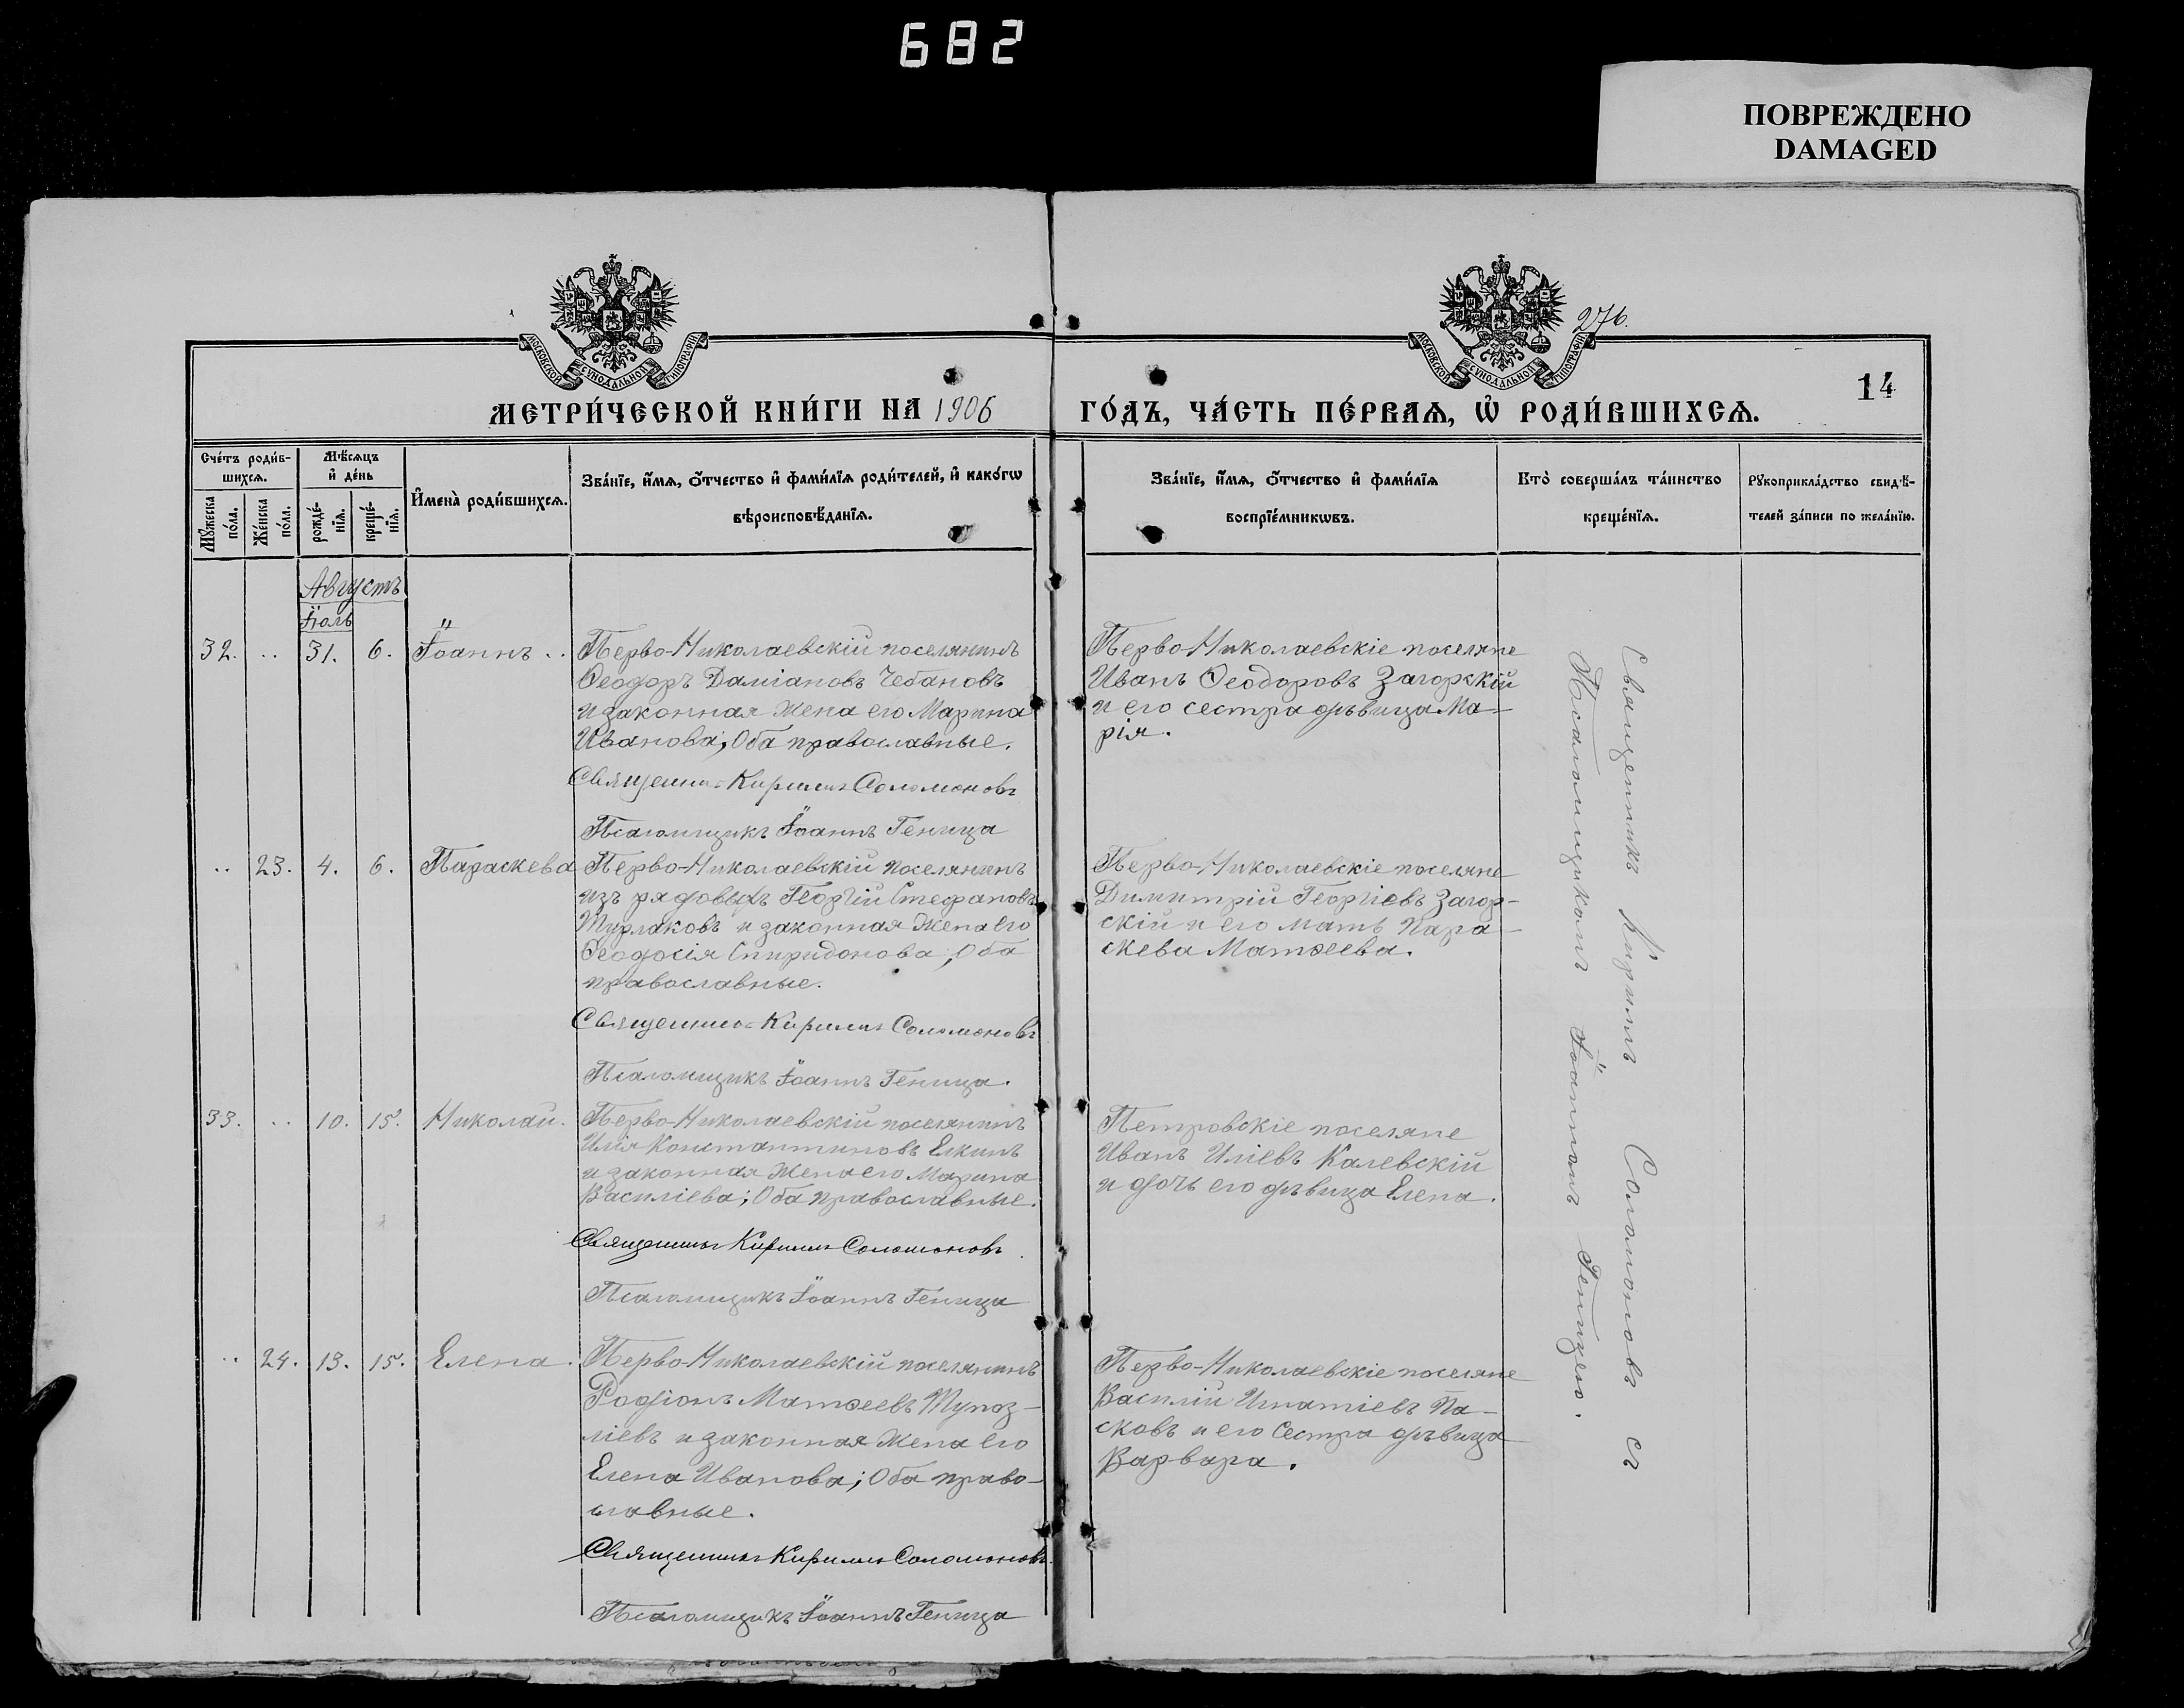 682
ПОВРЕЖДЕНО
DAMAGED
МОСКОВСКОЙ СУНОДАЛЬНОЙ ТИПОГРАФІИ
МОСКОВСКОЙ СУНОДАЛЬНОЙ ТИПОГРАФІИ
276.
14
МЕТРИ́ЧЕСКОЙ КНИ́ГИ НА 1906
ГО́ДЪ, ЧА́СТЬ ПЕ́РВАѦ, Ѡ҆ РОДИ́ВШИХСѦ.
Сче́тъ роди́в-
шихсѧ.
Мꙋ́жеска
по́ла.
Же́нска
по́ла.
Мѣ́сѧцъ
и҆ де́нь
рожде́-
нїѧ.
креще́-
нїѧ.
И҆мена̀ роди́вшихсѧ.
Зва́нїе, и҆́мѧ, ѻ҆́тчество и҆ фами́лїѧ роди́телей, и҆ како́гѡ
вѣроисповѣ́данїѧ.
Зва́нїе, и҆́мѧ, ѻ҆́тчество и҆ фами́лїѧ
воспрїе́мникѡвъ.
Кто̀ соверша́лъ та́инство
креще́нїѧ.
Рꙋкоприкла́дство свидѣ́-
телей за́писи по жела́нїю.
Августъ
Іюль
32. .. 31. 6. Іоаннъ ..
Перво-Николаевскій поселянинъ
Ѳеодоръ Даміановъ Чебановъ
и законная жена его Марина
Иванова; Оба православные.
Священникъ Кириллъ Соломоновъ
Псаломщикъ Іоаннъ Геница
Перво-Николаевскіе поселяне
Иванъ Ѳеодоровъ Загорскій
и его сестра дѣвица Ма-
рія.
.. 23. 4. 6. Параскева
Перво-Николаевскій поселянинъ
изъ рядовыхъ Георгій Стефановъ
Турлаковъ и законная жена его
Ѳеодосія Спиридонова; Оба
православные.
Священникъ Кириллъ Соломоновъ
Псаломщикъ Іоаннъ Геница.
Перво-Николаевскіе поселяне
Димитрій Георгіевъ Загор-
скій и его мать Пара-
скева Матѳеева.
33. .. 10. 15. Николай.
Перво-Николаевскій поселянинъ
Илія Константиновъ Елкинъ
и законная жена его Марина
Василіева; Оба православные.
Священникъ Кириллъ Соломоновъ
Псаломщикъ Іоаннъ Геница
Петровскіе поселяне
Иванъ Иліевъ Калевскій
и дочь его дѣвица Елена.
.. 24. 13. 15. Елена.
Перво-Николаевскій поселянинъ
Родіонъ Матѳеевъ Тупоз-
ліевъ и законная жена его
Елена Иванова; Оба право-
славные.
Священникъ Кириллъ Соломоновъ
Псаломщикъ Іоаннъ Геница
Перво-Николаевскіе поселяне
Василій Игнатіевъ Па-
сковъ и его сестра дѣвица
Варвара.
Священникъ Кириллъ Соломоновъ съ
Псаломщикомъ Іоанномъ Геницею.